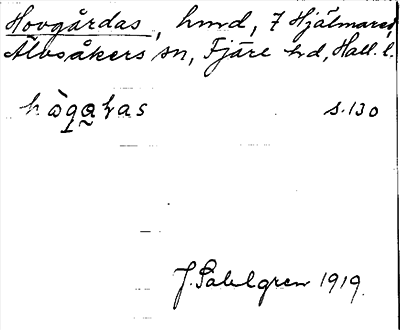 Hovgårdas, hmd, 7 Hjälmared,
Älvsåkers sn, Fjäre hd, Hall. l.
hògaɦas s. 130
J. Sahlgren 1919.